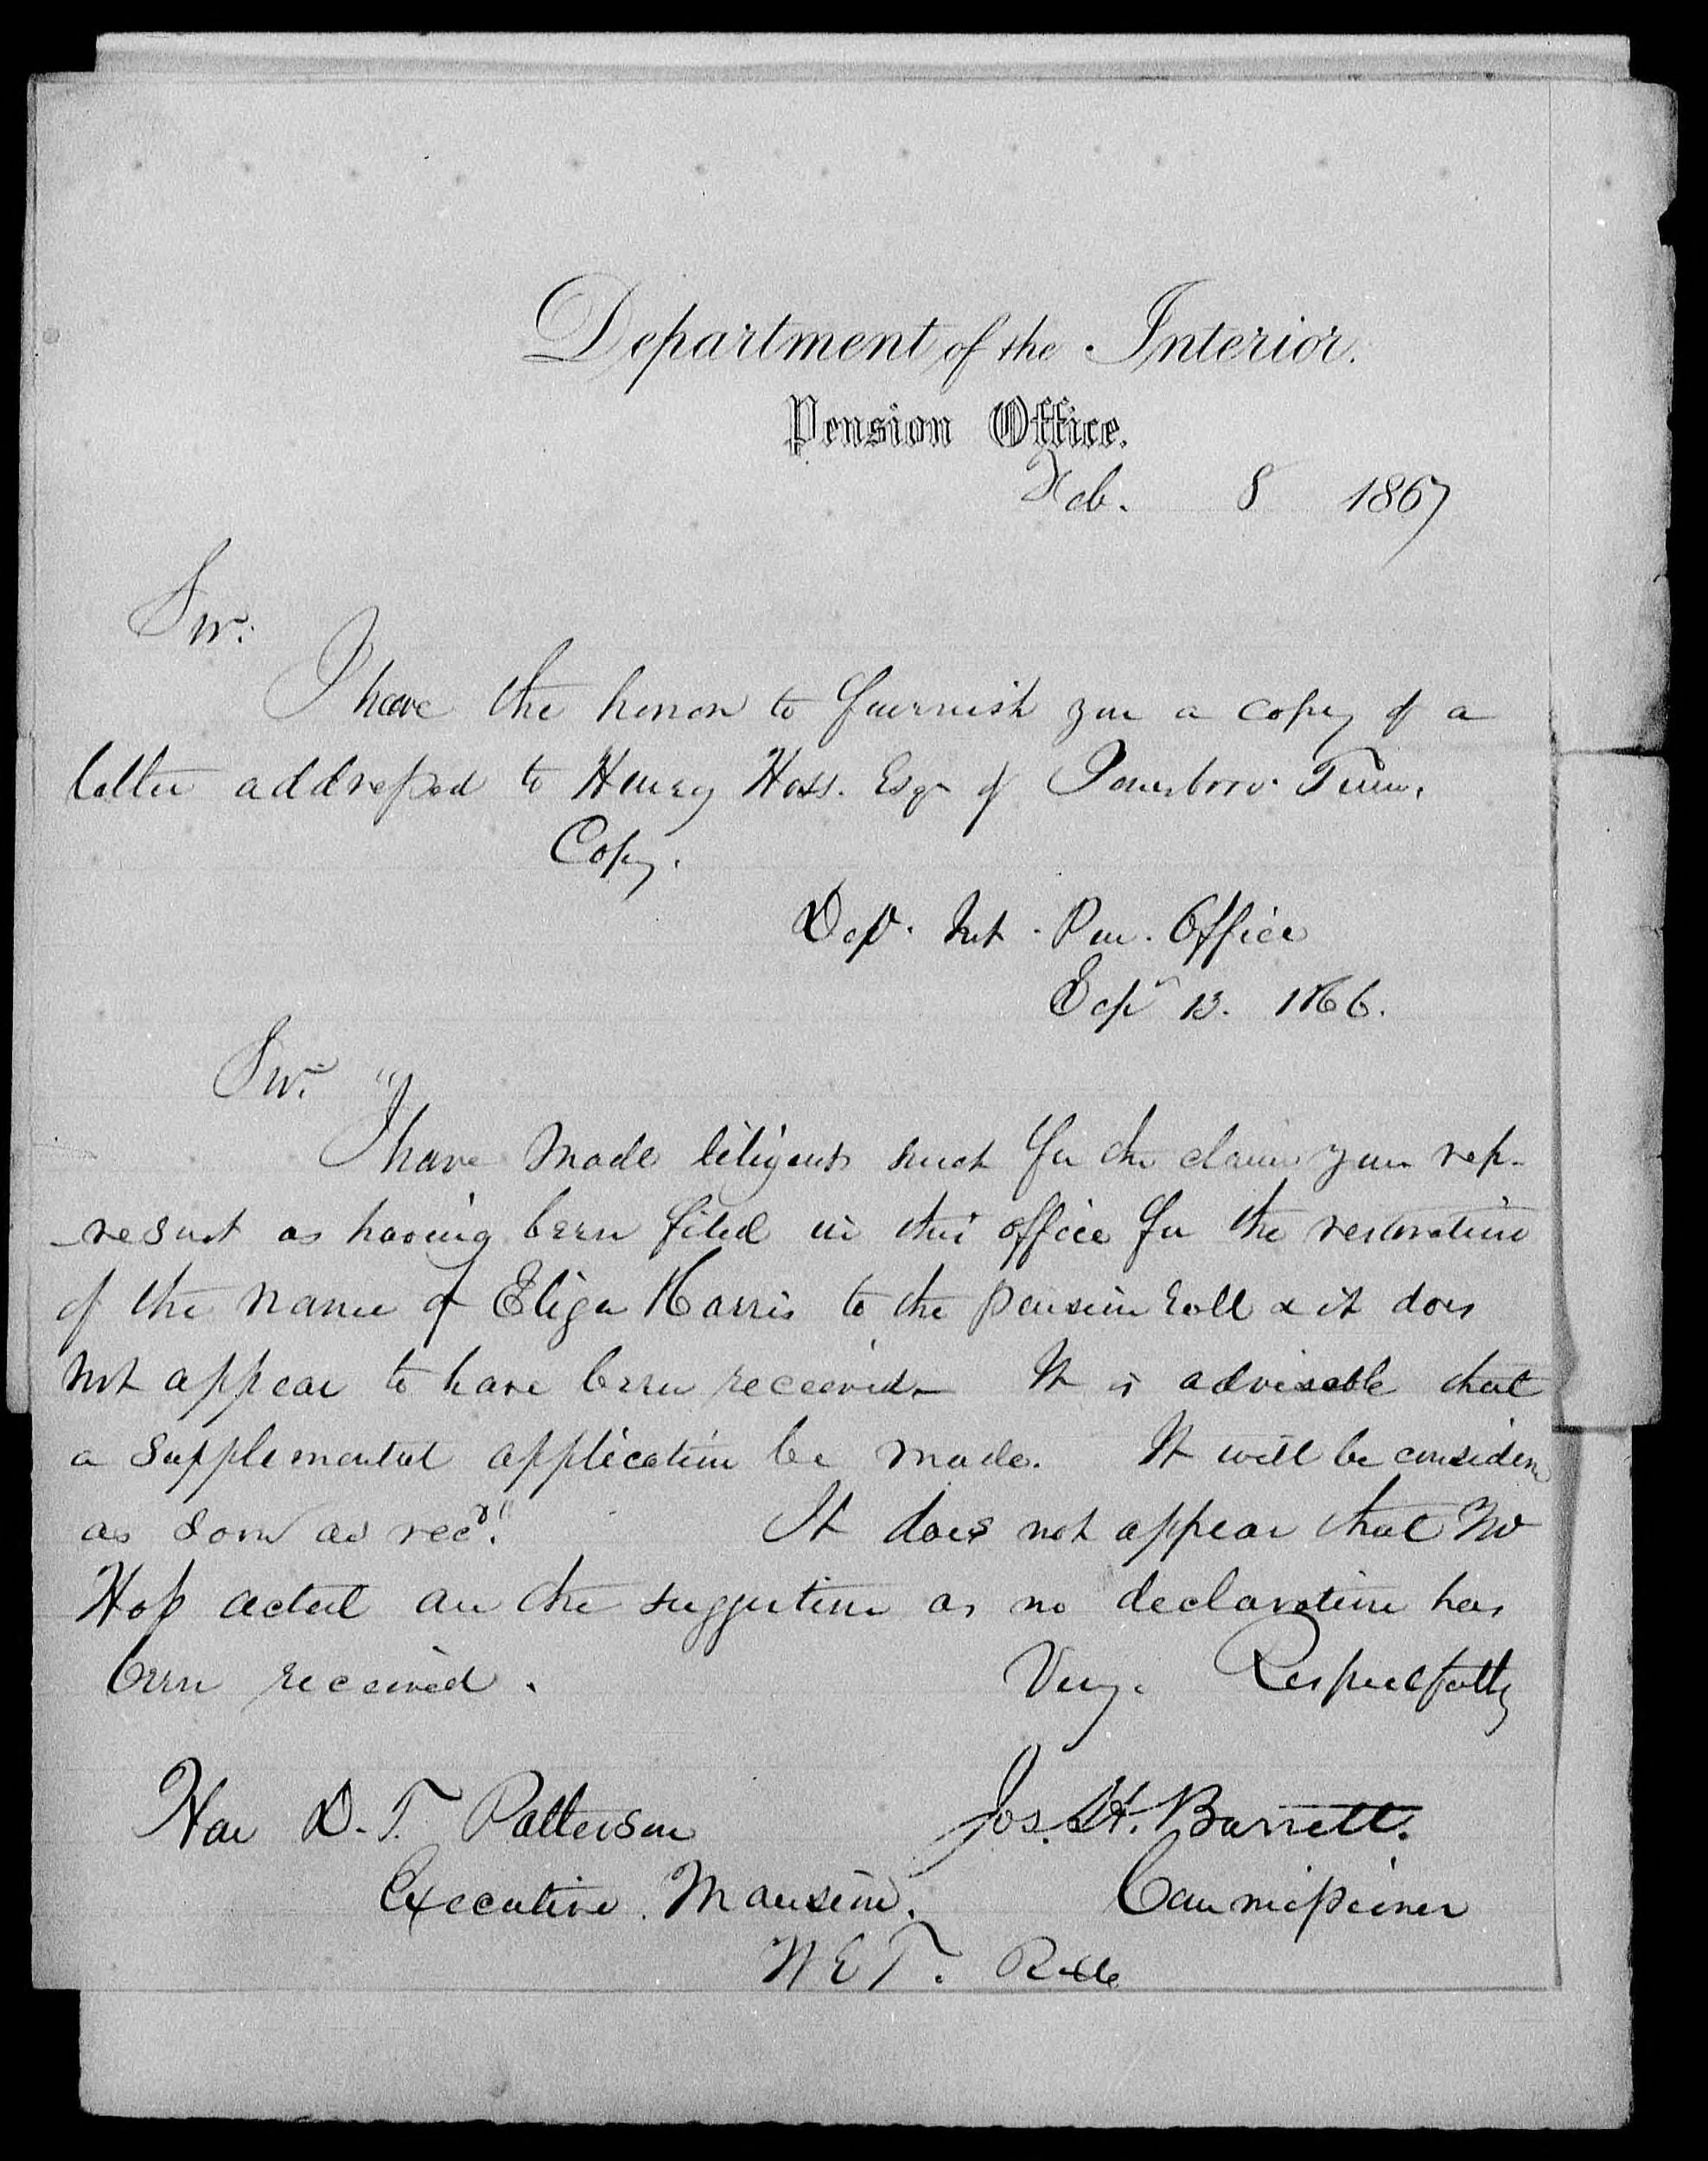 Department of the Interior.
Pension Office.
Feb. 8 1867
Sir:
I have the honor to furnish you a copy of a
letter addressed to Henry Hoss. Esqr of Jonesboro. Tenn.
Copy.
Dep't. Int. Pen. Office
Sept 13. 1866.
Sir. "I have made diligent search for the claim you rep-
-resent as having been filed in this office for the restoration
of the name of Eliza Harris to the pension roll & it does
not appear to have been received. It is advisable that
a supplemental application be made. It will be considered
as soon as recd." It does not appear that Mr
Hoss acted on the suggestion as no declaration has
been received. Very Respectfully
Hon D. T. Patterson Jos. H. Barrett.
Executive Mansion. Commissioner
W E T.